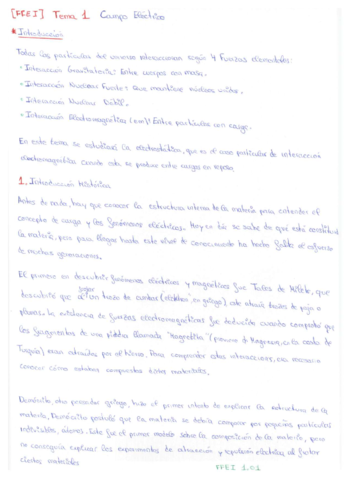 [FFEI] Tema 1 Campo Eléctrico
* Introducción
Todas las partículas del universo interaccionan según 4 fuerzas elementales:
· Interacción Gravitatoria: Entre cuerpos con masa.
· Interacción Nuclear Fuerte: Que mantiene núcleos unidos.
· Interacción Nuclear Débil.
· Interacción Electromagnética (em): Entre partículas con carga.
En este tema se estudiará la electrostática, que es el caso particular de interacción
electromagnética cuando esta se produce entre cargas en reposo
1. Introducción Histórica
Antes de nada, hay que conocer la estructura interna de la materia para entender el
concepto de carga y los fenómenos eléctricos. Hoy en día se sabe de qué está constituida
la materia, pero para llegar hasta este nivel de conocimiento ha hecho falta el esfuerzo
de muchas generaciones.
El primero en descubrir fenómenos eléctricos y magnéticos fue Tales de Mileto, que
descubrió que al frotar trozo de ámbar (elektron en griego), este atraía trozos de paja o
plumas. La existencia de fuerzas electromagnéticas fue deducida cuando comprobó que
los fragmentos de una piedra llamada "magnetita" (proviene de Magnesia, en la costa de
Turquía) eran atraídos por el hierro. Para comprender estas interacciones, era necesario
conocer cómo estaban compuestos estos materiales.
Demócrito, otro pensador griego, hizo el primer intento de explicar la estructura de la
materia. Demócrito postuló que la materia se debía componer por pequeñas partículas
indivisibles, átomos. Este fue el primer modelo sobre la composición de la materia, pero
no conseguía explicar los experimentos de atracción y repulsión eléctrica al frotar
ciertos materiales
FFEI 1.0.1